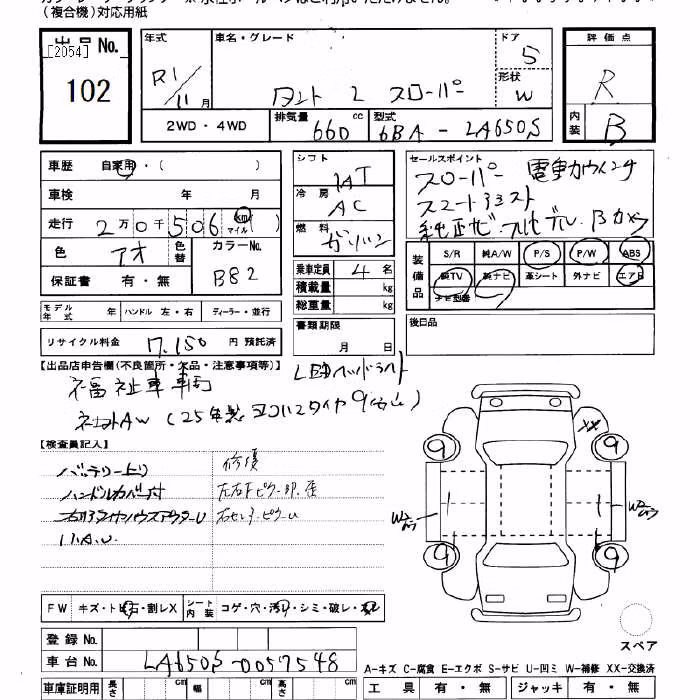 (複合機)対応用紙
出品No.
[2054]
102
年式
R1/11月
車名・グレード
タント L スローパー
ドア
5
形状
W
評価点
R
内装
B
2WD・4WD
排気量
660 cc
型式
6BA - LA650S
車歴 自家用・( )
車検 年 月
走行 2万0千506 km マイル ( )
色 アオ
色替
カラーNo.
B82
保証書 有・無
シフト
IAT
冷房
AC
燃料
ガソリン
乗車定員 4 名
積載量 kg
総重量 kg
書類期限
月 日
セールスポイント
スローパー 電動カウインチ
スマートアシスト
純正ナビ・フルセグ・Bカメラ
装備品
S/R 純A/W P/S P/W ABS
純TV 純ナビ 革シート 外ナビ エアB
ナビ型番
後日品
モデル年式 年
ハンドル 左・右
ディーラー・並行
リサイクル料金 7,150 円 預託済
【出品店申告欄(不良箇所・欠品・注意事項等)】
LEDヘッドライト
福祉車両
社外AW (25年製 ヨコハマタイヤ9分山)
【検査員記入】
バッテリー上り
ハンドルカバー付
修復
FW キズ・ト石・割レX
シート内装 コゲ・穴・汚レ・シミ・破レ・
XX
9
9
9
9
W2
W2
スペア
登録No.
車台No. LA650S-0057548
A-キズ C-腐食 E-エクボ S-サビ U-凹ミ W-補修 XX-交換済
車庫証明用 長さ cm 幅 cm 高さ cm
工具 有・無 ジャッキ 有・無